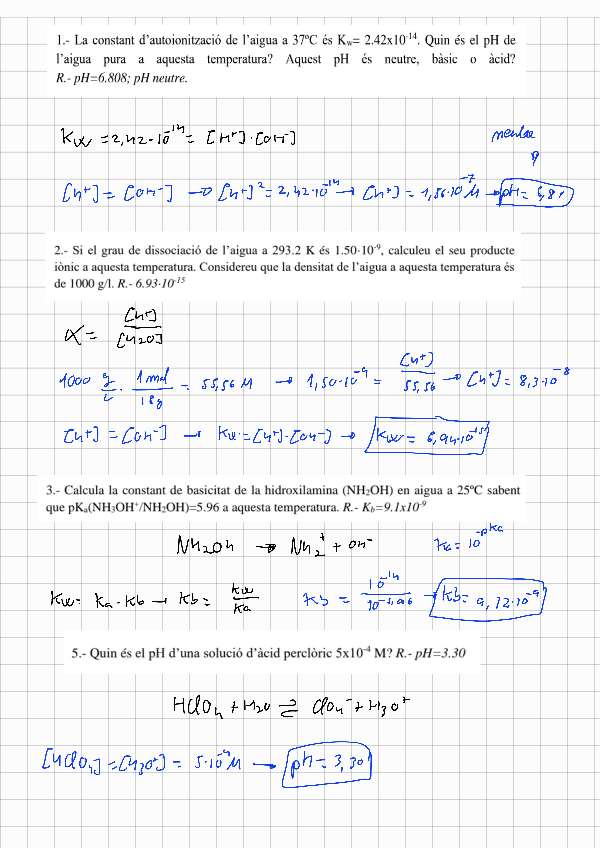 1.- La constant d'autoionització de l'aigua a 37ºC és Kw= 2.42x10⁻¹⁴. Quin és el pH de
l'aigua pura a aquesta temperatura? Aquest pH és neutre, bàsic o àcid?
R.- pH=6.808; pH neutre.
Kw = 2,42·10⁻¹⁴ = [H⁺]·[OH⁻]
[H⁺] = [OH⁻] → [H⁺]² = 2,42·10⁻¹⁴ → [H⁺] = 1,56·10⁻⁷ M → pH = 6,81
2.- Si el grau de dissociació de l'aigua a 293.2 K és 1.50·10⁻⁹, calculeu el seu producte
iònic a aquesta temperatura. Considereu que la densitat de l'aigua a aquesta temperatura és
de 1000 g/l. R.- 6.93·10⁻¹⁵
α = [H⁺]/[H2O]
1000 g/L · 1 mol/18g = 55,56 M → 1,50·10⁻⁹ = [H⁺]/55,56 → [H⁺] = 8,3·10⁻⁸
[H⁺] = [OH⁻] → Kw = [H⁺]·[OH⁻] → Kw = 6,94·10⁻¹⁵
3.- Calcula la constant de basicitat de la hidroxilamina (NH₂OH) en aigua a 25ºC sabent
que pKₐ(NH₃OH⁺/NH₂OH)=5.96 a aquesta temperatura. R.- Kb=9.1x10⁻⁹
NH2OH → NH2⁺ + OH⁻ Ka = 10^-pKa
Kw = Ka·Kb → Kb = Kw/Ka Kb = 10⁻¹⁴/10⁻⁵,⁹⁶ → Kb = 9,12·10⁻⁹
5.- Quin és el pH d'una solució d'àcid perclòric 5x10⁻⁴ M? R.- pH=3.30
HClO4 + H2O ⇌ ClO4⁻ + H3O⁺
[HClO4] = [H3O⁺] = 5·10⁻⁴ M → pH = 3,30